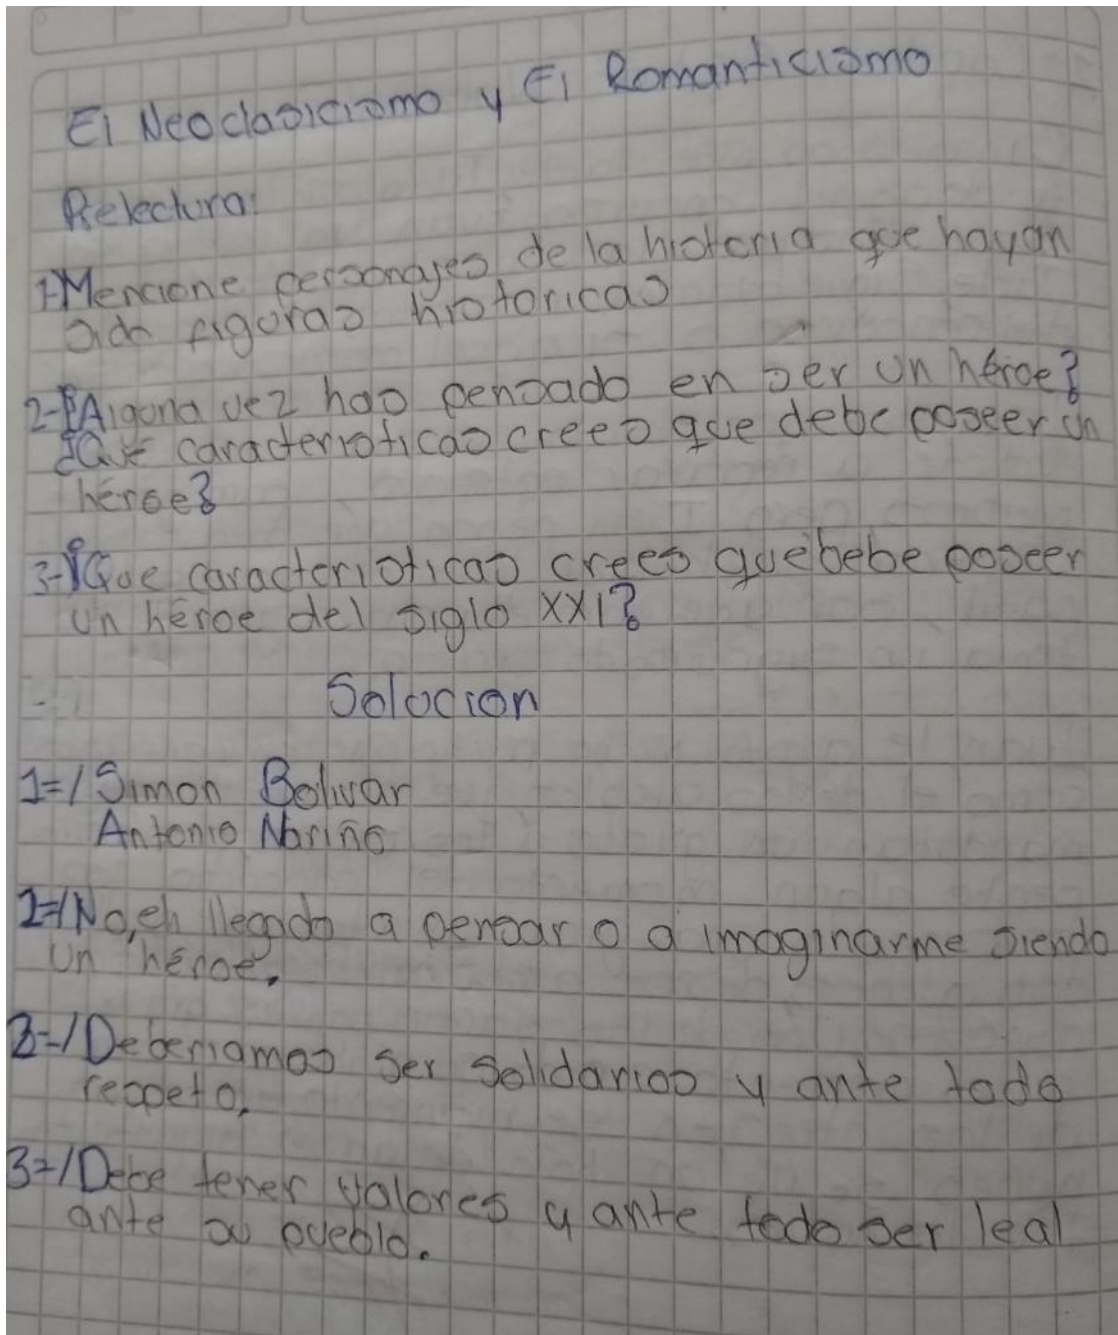 El Neoclasicismo y El Romanticismo
Relectura:
1-Mencione personajes de la historia que hayan
sido figuras historicas
2-¿Alguna vez has pensado en ser un héroe?
¿Que caracteristicas crees que debe poseer un
héroe?
3-¿Que caracteristicas crees que bebe poseer
un héroe del siglo XXI?
Solucion
1=/Simon Bolivar
Antonio Nariño
2=/No,eh llegado a pensar o a imaginarme siendo
un héroe.
2=/Deberiamos ser solidarios y ante todo
respeto.
3=/Debe tener valores y ante todo ser leal
ante su pueblo.